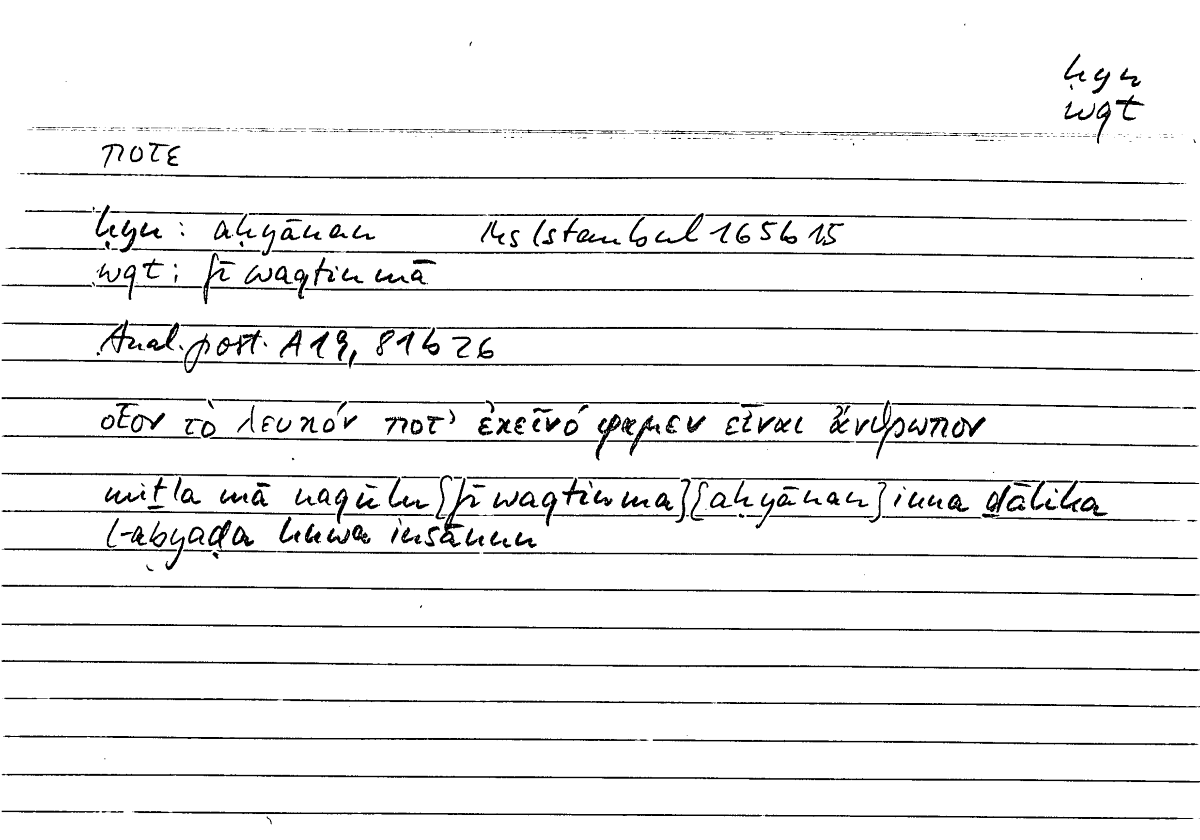 ḥyn
wqt
ποτε
ḥyn: aḥyānan Ms Istanbul 165b15
wqt: fī waqtin mā
Anal. post. A19, 81b26
οἷον τὸ λευκόν ποτ' ἐκεῖνό φαμεν εἶναι ἄνθρωπον
miṯla mā naqūlu [fī waqtin ma][aḥyānan] inna ḏālika
l-abyaḍa huwa insānun